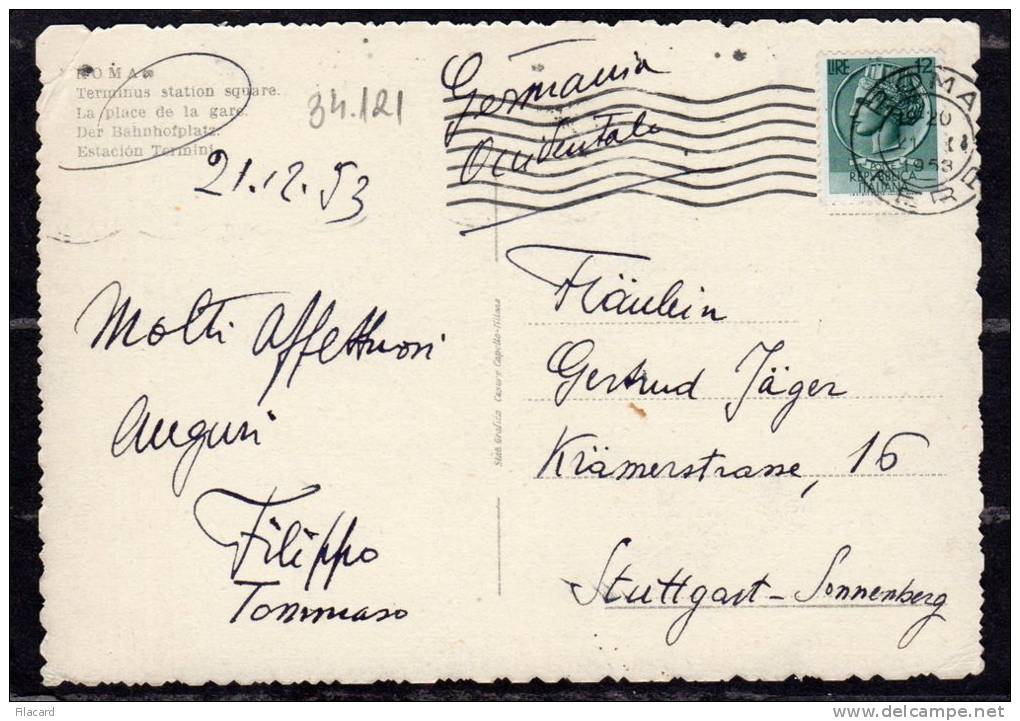 ROMA
Terminus station square.
La place de la gare.
Der Bahnhofplatz.
Estación Termini
34.121
21.12.53
Germania
Occidentale
LIRE 12
REPUBBLICA
ITALIANA
ROMA
19-20
1953
Molti affettuosi
auguri
Filippo
Tommaso
Stab. Grafico Cesare Capello-Milano
Fräulein
Gertrud Jäger
Krämerstrasse, 16
Stuttgart-Sonnenberg
Filacard
delcampe.net